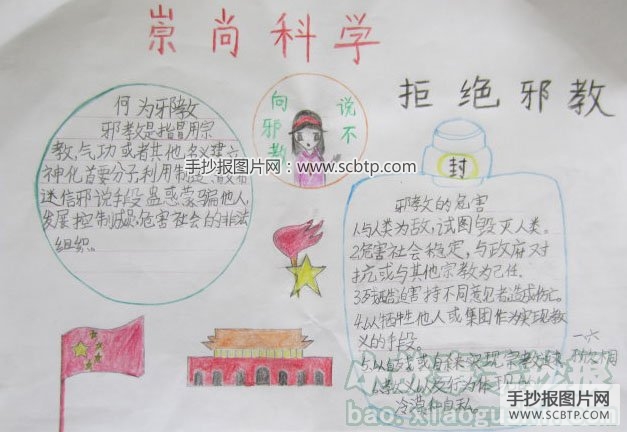 崇尚科学
拒绝邪教
向邪教
说不
何为邪教
邪教是指冒用宗
教,气功或者其他名义建立
神化首要分子,利用制造、散布
迷信邪说手段蛊惑蒙骗他人,
发展控制成员,危害社会的非法
组织。
手抄报图网:www.scbtp.com
封
邪教的危害
1.与人类为敌,试图毁灭人类。
2.危害社会稳定,与政府对
抗或与其他宗教为己任.
3.残酷迫害持不同意见者,造成伤亡。
4.以牺牲他人或集团作为实现教
义的手段。
5.以自
冷漠和自私.
一六
手抄报图网
www.SCBTP.com
bao.xiaogu